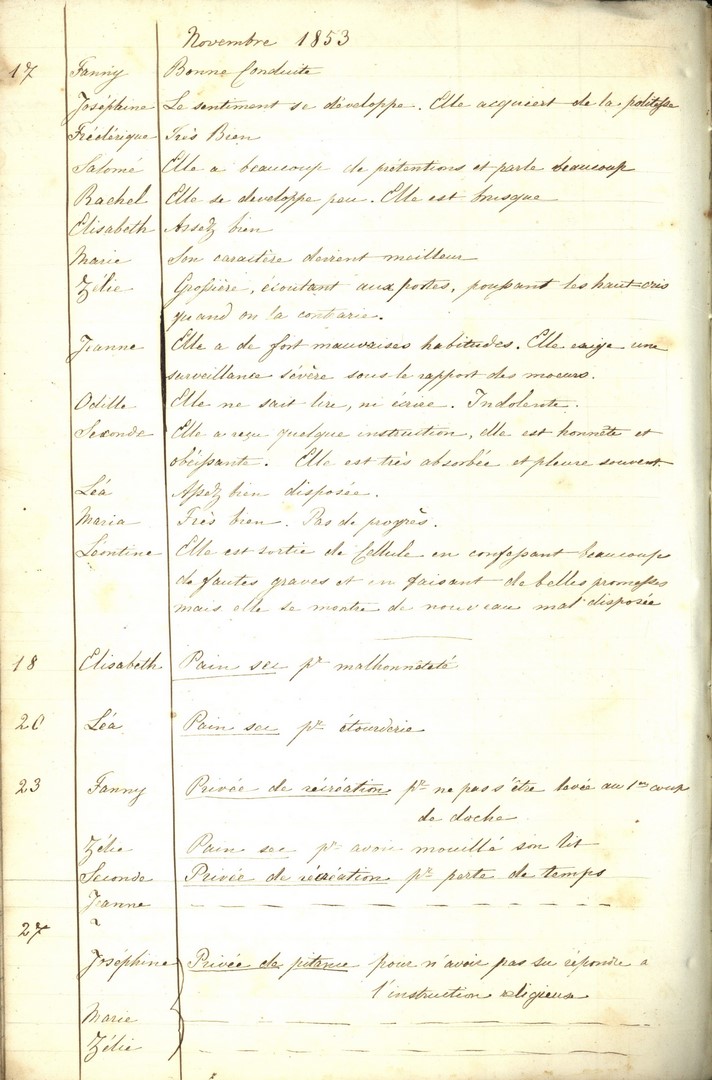 Novembre 1853
17 Fanny Bonne Conduite
Joséphine Le sentiment se développe. Elle acquiert de la politesse
Frédérique Très Bien
Salomé Elle a beaucoup de prétentions et parle beaucoup
Rachel Elle se developpe peu. Elle est brusque
Elisabeth Assez bien
Marie Son caractère devient meilleur
Zélie Grossière, écoutant aux portes, poussant les haut cris
quand on la contrarie.
Jeanne Elle a de fort mauvaises habitudes. Elle exige une
surveillance sévère sous le rapport des moeurs.
Odille Elle ne sait lire, ni écrire. Indolente.
Seconde Elle a reçu quelque instruction, elle est honnête et
obéissante. Elle est très absorbée et pleure souvent
Léa Assez bien disposée.
Maria Très bien. Pas de progrès.
Léontine Elle est sortie de Cellule en confessant beaucoup
de fautes graves et en faisant de belles promesses
mais elle se montre de nouveau mal disposée
18 Elisabeth Pain sec pr malhonnêteté
20 Léa Pain sec pr étourderie
23 Fanny Privée de récréation pr ne pas s'être levée au 1er coup
de cloche
Zélie Pain sec pr avoir mouillé son lit
Seconde Privée de récréation pr perte de temps
Jeanne — — — — — — —
27 "
Joséphine Privée de pitance pour n'avoir pas su répondre a
l'instruction religieuse
Marie — — — — — — —
Zélie — — — — — — —